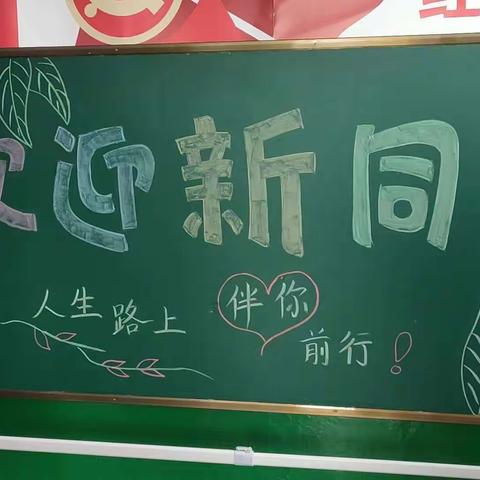 欢迎新同
人生路上 伴你前行！